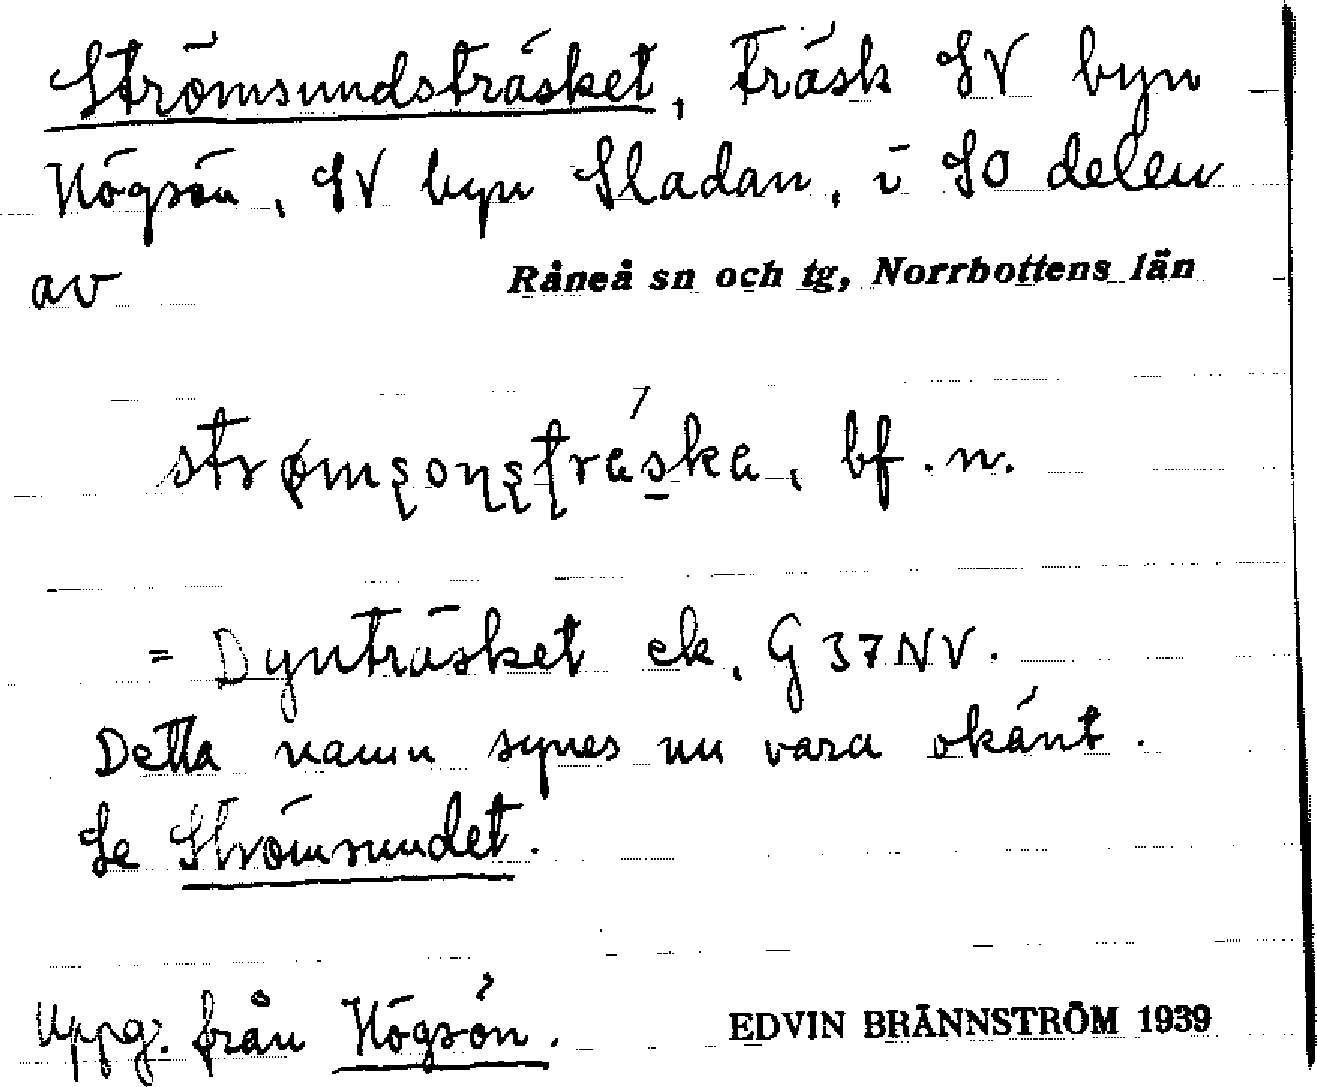 Strömsundsträsket, Träsk SV byn
Högsön, SV byn Sladan, i SO delen
av Råneå sn och tg, Norrbottens län
bf. n.
= Dynträsket ek. G 37 NV.
Detta namn synes nu vara okänt.
Se Strömsundet.
Uppg. från Högsön. EDVIN BRÄNNSTRÖM 1939